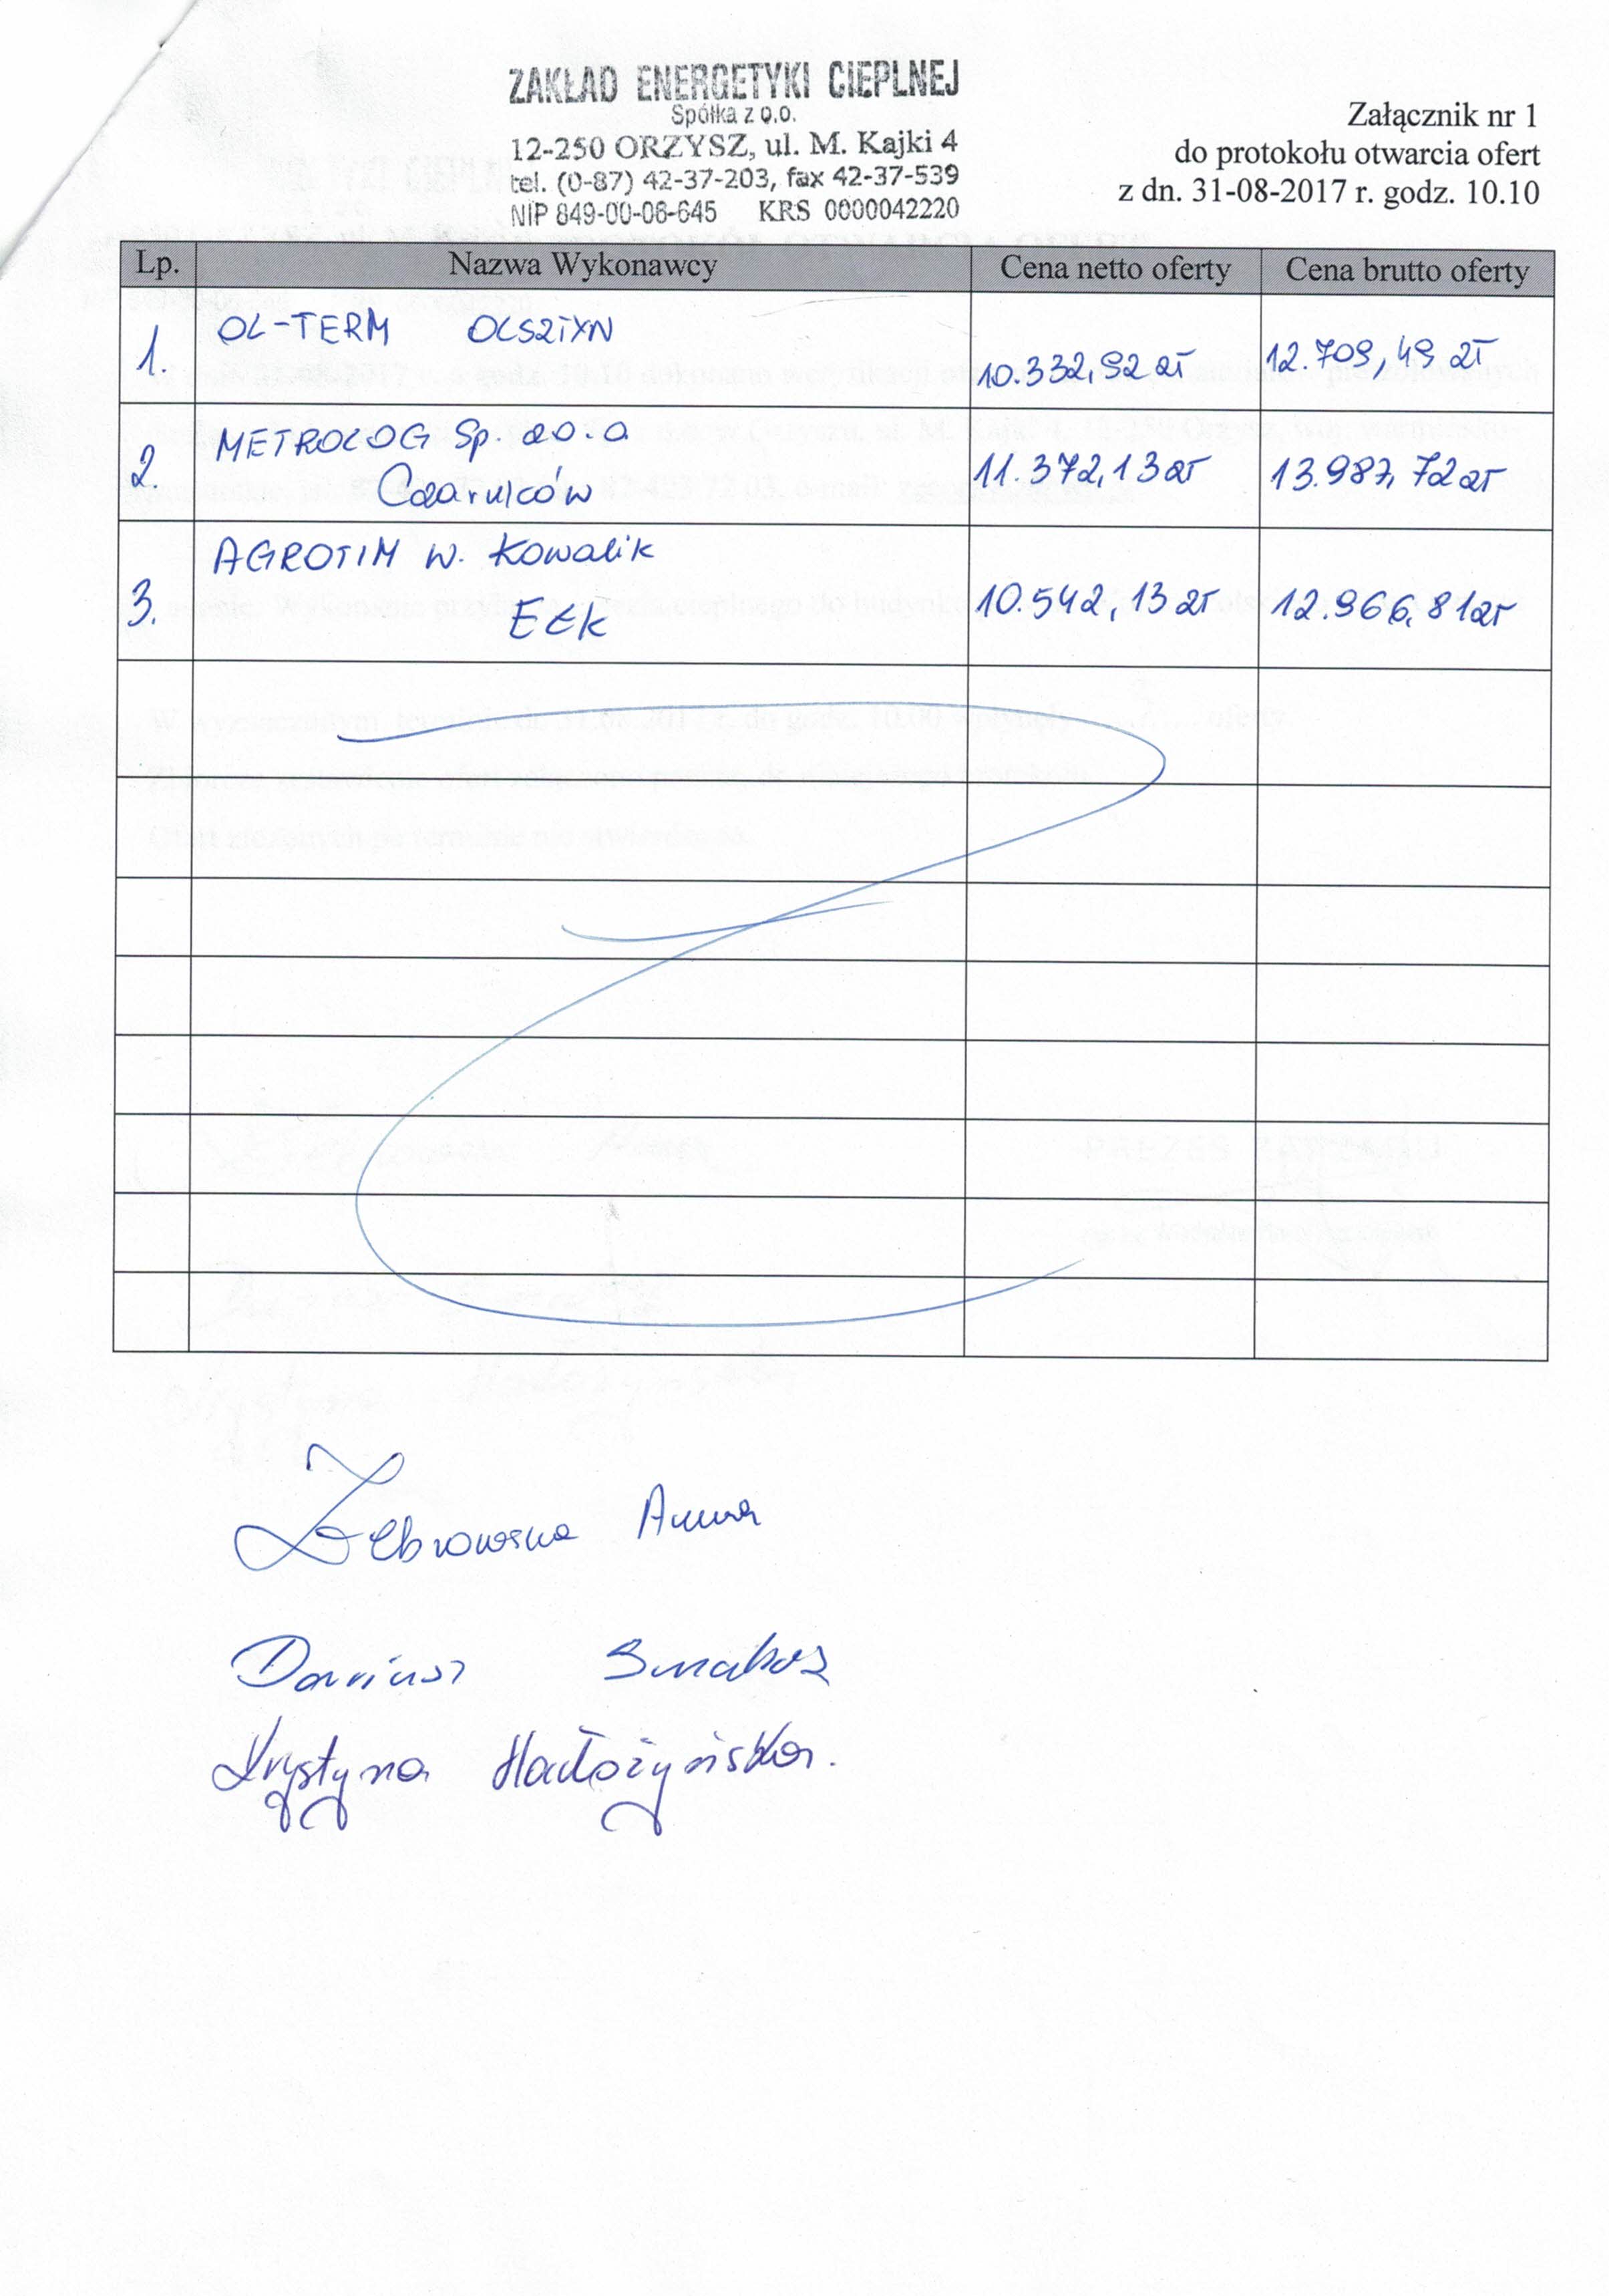 ZAKŁAD ENERGETYKI CIEPLNEJ
Spółka z o.o.
12-250 ORZYSZ, ul. M. Kajki 4
tel. (0-87) 42-37-203, fax 42-37-539
NIP 849-00-06-645 KRS 0000042220
Załącznik nr 1
do protokołu otwarcia ofert
z dn. 31-08-2017 r. godz. 10.10
Lp. Nazwa Wykonawcy Cena netto oferty Cena brutto oferty
OL-TERM OLSZTYN
1. 10.332,92 zł 12.709,49 zł
METROLOG Sp. z o.o
2. Czarnków 11.372,13 zł 13.987,72 zł
AGROTIM W. Kowalik
3. EŁK 10.542,13 zł 12.966,81 zł
Żebrowska Anna
Dariusz
Krystyna